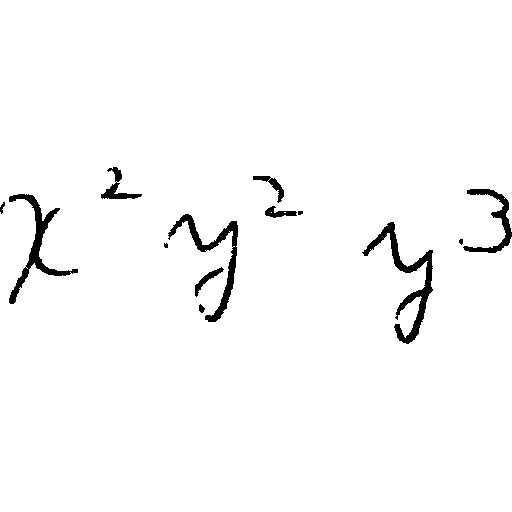 x² y² y³